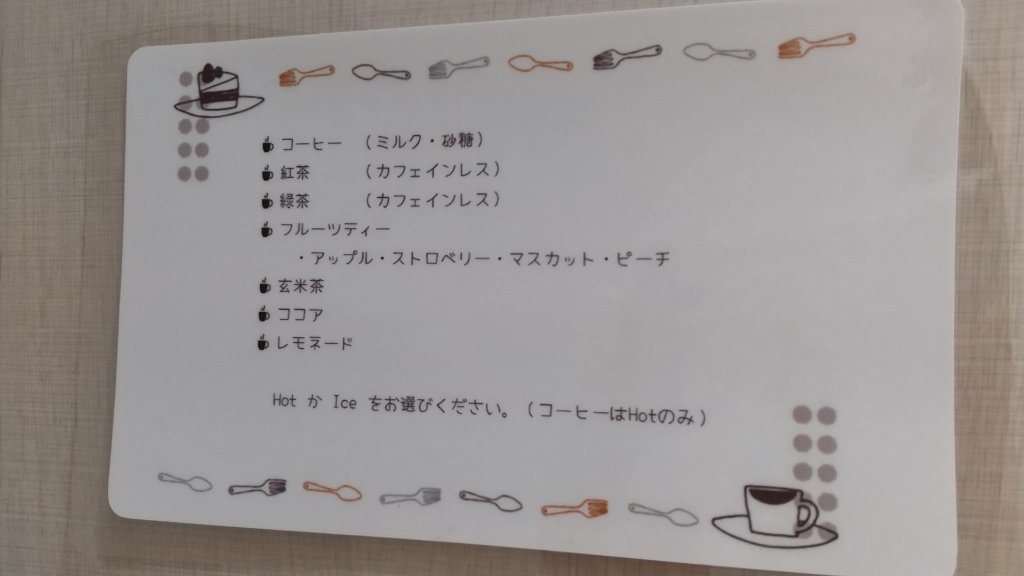 コーヒー （ミルク・砂糖）
紅茶 （カフェインレス）
緑茶 （カフェインレス）
フルーツティー
・アップル・ストロベリー・マスカット・ピーチ
玄米茶
ココア
レモネード
Hot か Ice をお選びください。（コーヒーはHotのみ）